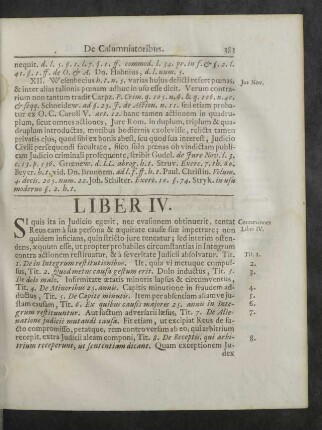 De Calumniatoribus. 383
nequit. d. l. 5. §. 1. l. 7. §. 1. ff. commod. l. 34. pr. in f. & §. 2. l.
41. §. 1. ff. de O. & A. Dn. Hahnius, d. l. num. 5.
XII. Wesenbecius h. t. n. 5. varias hujus delicti refert pœnas, Jus Nov.
& inter alias talionis pœnam adhuc in usu esse dicit. Verum contra-
rium non tantum tradit Carpz. P. Crim. q. 105. n.4. & q. 106. n.41.
& seqq. Schneidew. ad §. 23. ff. de Action. n. 11. sed etiam proba-
tur ex O. C. Caroli V. art. 12. hanc tamen actionem in quadru-
plum, sicut omnes actiones, Jure Rom. in duplum, triplum & qua-
druplum introductas, moribus hodiernis exolevisse, relicta tamen
privatis ejus, quod sibi ex bonis abest, seu quod sua interest, Judicio
Civili persequendi facultate, fisco solo pœnas ob vindictam publi-
cam Judicio criminali prosequente, scribit Gudel. de Jure Nov. l. 5.
c. 13. p. 196. Grœnew. d. LL. abrog. h. t. Struv. Exerc. 7. th. 80.
Beyer. h. t. vid. Dn. Brunnem. ad l. ff. h. t. Paul. Christin. Volum.
4. decis. 205. num. 22. Joh. Schilter. Exerc. 10. §. 74. Stryk. in usu
moderno §. 2. h. t.
LIBER IV.
SI quis ita in Judicio egerit, nec evasionem obtinuerit, tentat Continuatio
Reus eam à sua persona & æquitate causæ suæ impetrare; non Libri IV.
quidem inficians, quin stricto jure teneatur; sed interim osten-
dens, æquum esse, ut propter probabiles circumstantias in Integrum
contra actionem restituatur, & à severitate Judicii absolvatur. Tit. Tit. 1.
1. De in Integrum restitutionibus. Ut, quia vi metuque compul-
sus, Tit. 2. Quod metus causa gestum erit. Dolo inductus, Tit. 3. 2.
De dolo malo. Infirmitate ætatis minoris lapsus & circumventus, 3.
Tit. 4. De Minoribus 25. annis. Capitis minutione in fraudem ad- 4.
ductus, Tit. 5. De Capite minutis. Item per absentiam aliamve ju- 5.
stam causam, Tit. 6. Ex quibus causis majores 25. annis in Inte- 6.
grum restituuntur. Aut luctum adversarii læsus, Tit. 7. De Alie- 7.
natione judicii mutandi causa. Fit etiam, ut excipiat Reus de fa-
cto compromisso, petatque, rem controversam ab eo, qui arbitrium
recepit, extra Judicii aleam componi, Tit. 8. De Receptis, qui arbi- 8.
trium receperunt, ut sententiam dicant. Quam exceptionem Ju-
dex